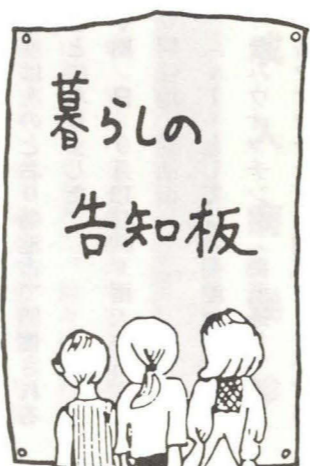 暮らしの
告知板